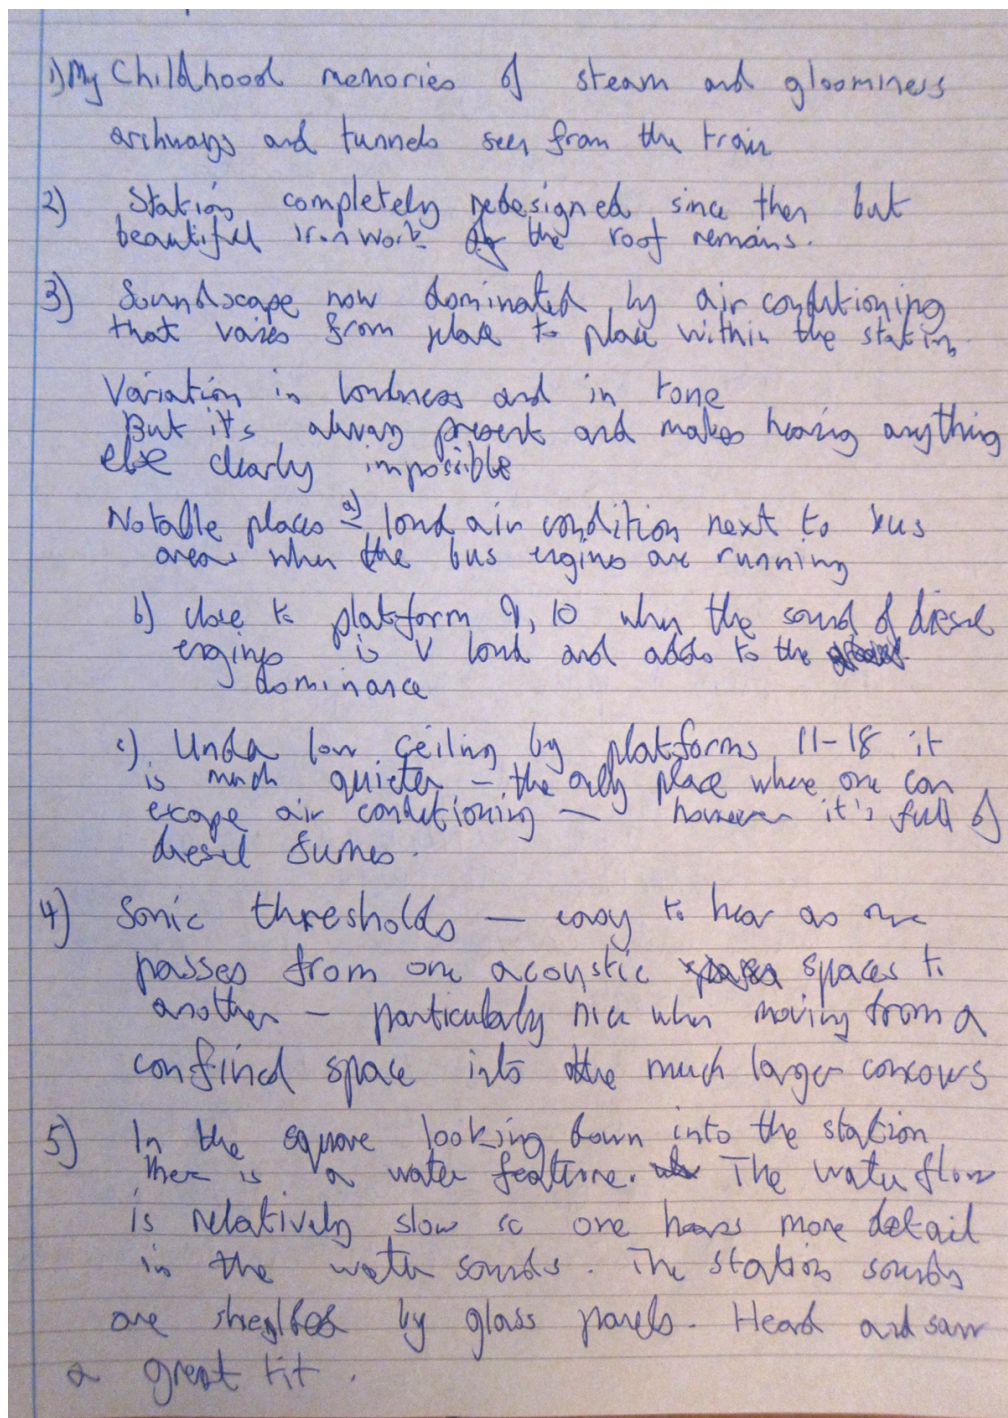 1) My Childhood memories of steam and gloominess
archways and tunnels seen from the train
2) Station completely redesigned since then but
beautiful iron work of the roof remains.
3) Soundscape now dominated by air conditioning
that varies from place to place within the station.
Variation in loudness and in tone
But it's always present and makes hearing anything
else clearly impossible
Notable places a) loud air condition next to bus
areas when the bus engines are running
b) close to platform 9, 10 when the sound of diesel
engines is v loud and adds to the
dominance
c) Under low ceiling by platforms 11-18 it
is much quieter – the only place where one can
escape air conditioning – however it's full of
diesel fumes.
4) Sonic thresholds – easy to hear as one
passes from one acoustic spaces to
another – particularly nice when moving from a
confined space into the much larger concours
5) In the square looking down into the station
there is a water feature. The water flow
is relatively slow so one hears more detail
in the water sounds. The station sounds
are shielded by glass panels. Heard and saw
a great tit.